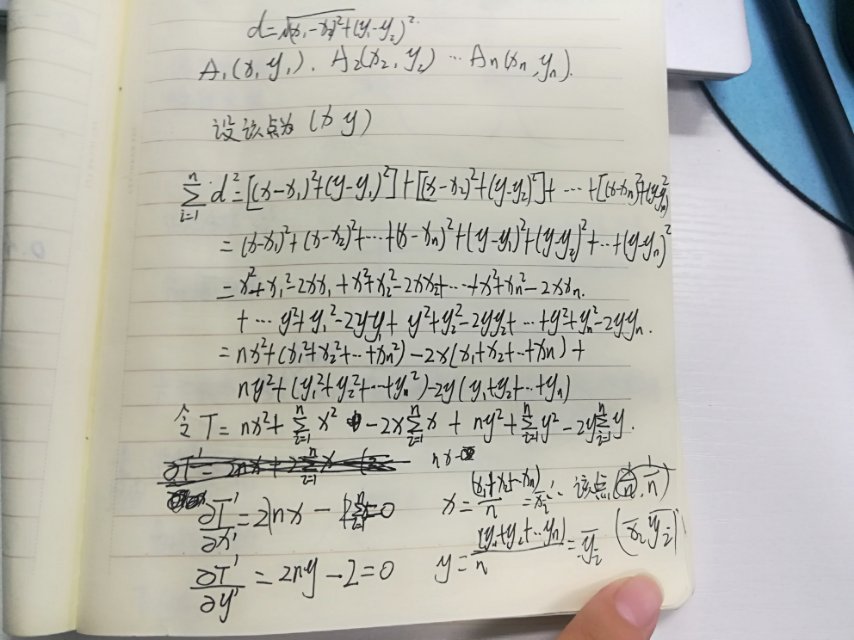 d=√(x₁-x₂)²+(y₁-y₂)²
A₁(x₁y₁).A₂(x₂,y₂)…An(xn,yn).
设该点为(x y)
∑ⁿᵢ₌₁d²=[(x-x₁)²+(y-y₁)²]+[(x-x₂)²+(y-y₂)²]+…+[(x-xn)²+(y-yn)²
=(x-x₁)²+(x-x₂)²+…+(x-xn)²+(y-y₁)²+(y-y₂)²+…+(y-yn)²
=x²+x₁²-2xx₁+x²+x₂²-2xx₂+…+x²+xn²-2xxn.
+…y²+y₁²-2yy₁+y²+y₂²-2yy₂+…+y²+yn²-2yyn.
=nx²+(x₁²+x₂²+…+xn²)-2x(x₁+x₂+…+xn)+
ny²+(y₁²+y₂²+…+yn²)-2y(y₁+y₂+…+yn)
令T=nx²+∑ⁿᵢ₌₁x²-2x∑ⁿᵢ₌₁x+ny²+∑ⁿᵢ₌₁y²-2y∑ⁿᵢ₌₁y.
nx-
∂T'/∂x'=2nx-=0 x=(x₁+x₂…xn)/n= 该点
∂T'/∂y'=2ny-2=0 y=(y₁+y₂+…yn)/n=y̅ᵢ (x̅ᵢ y̅ᵢ)